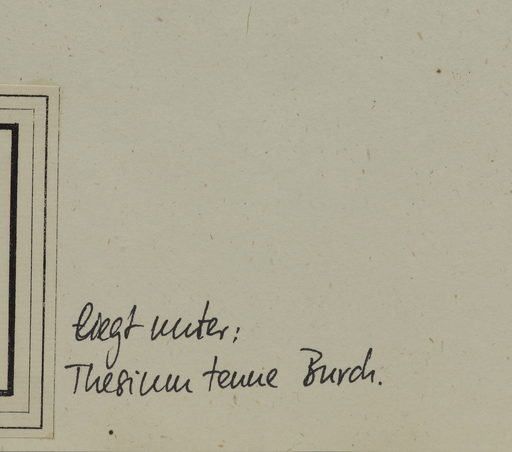 liegt unter:
Thesium tenue Burch.